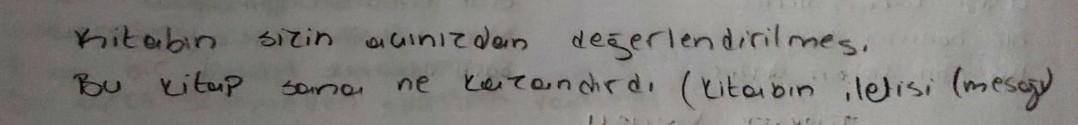 Kitabın sizin açınızdan değerlendirilmesi
Bu kitap sana ne kazandırdı (kitabın iletisi (mesajı)